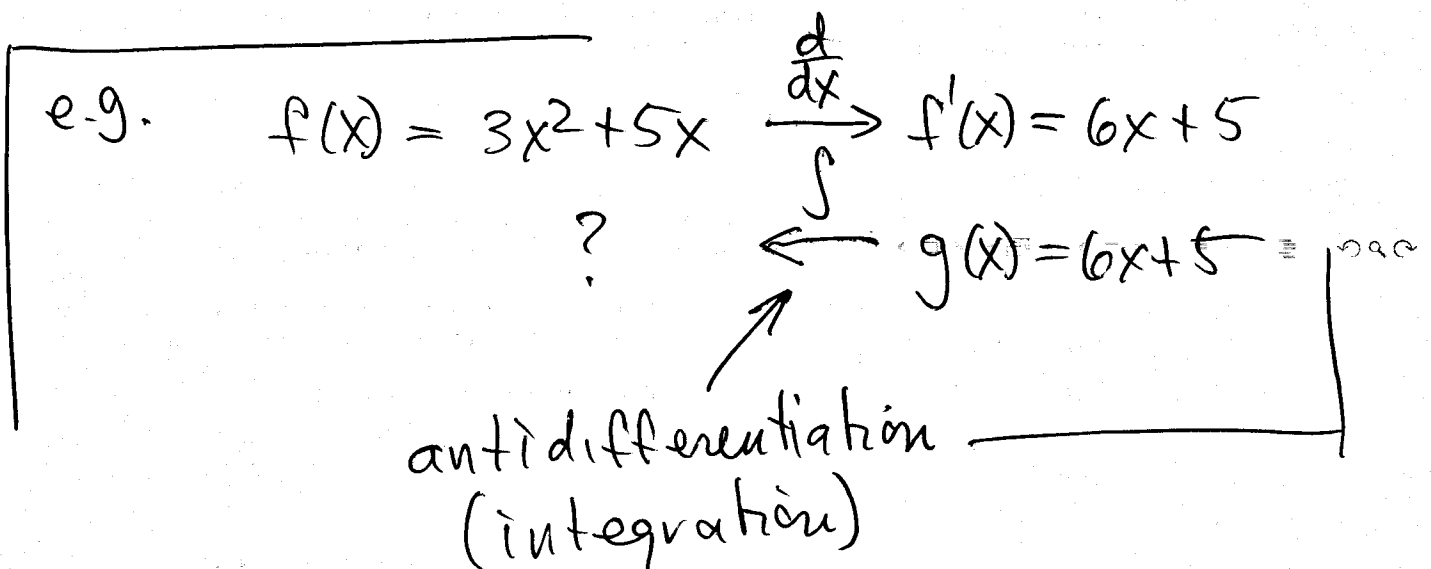 e.g. f(x) = 3x²+5x d/dx → f'(x) = 6x+5
∫
? ← g(x) = 6x+5
antidifferentiation
(integration)